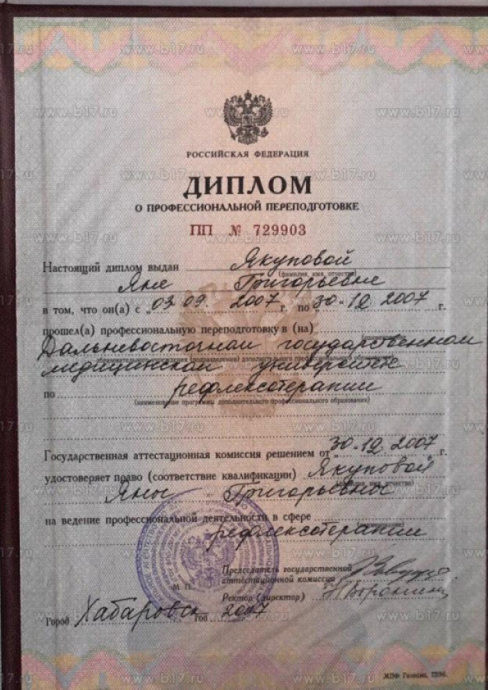 РОССИЙСКАЯ ФЕДЕРАЦИЯ
ДИПЛОМ
О ПРОФЕССИОНАЛЬНОЙ ПЕРЕПОДГОТОВКЕ
ПП № 729903
Настоящий диплом выдан Якуповой
(фамилия, имя, отчество)
Яне Григорьевне
в том, что он(а) с „03 09 2007 г. по „30-12 2007 г.
прошел(а) профессиональную переподготовку в (на)
Дальневосточном государственном
медицинском университете
по рефлексотерапии
(наименование программы дополнительного профессионального образования)
Государственная аттестационная комиссия решением от „30.12.2007 г.
удостоверяет право (соответствие квалификации) Якуповой
Яны Григорьевны
на ведение профессиональной деятельности в сфере
рефлексотерапии
Председатель государственной
аттестационной комиссии
М. П.
Ректор (директор)
Город Хабаровск год 2007
www.b17.ru